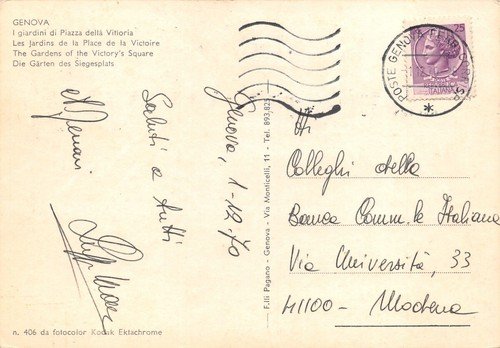 GENOVA
I giardini di Piazza della Vittoria
Les Jardins de la Place de la Victoire
The Gardens of the Victory's Square
Die Gärten des Siegesplats
Saluti a tutti
Genova, 1-12-70
F.lli Pagano - Genova - Via Monticelli, 11 - Tel. 893.825
n. 406 da fotocolor Kodak Ektachrome
POSTE GENOVA FERR
ITALIANA
Colleghi della
Banca Comm.le Italiana
Via Università, 33
41100 - Modena